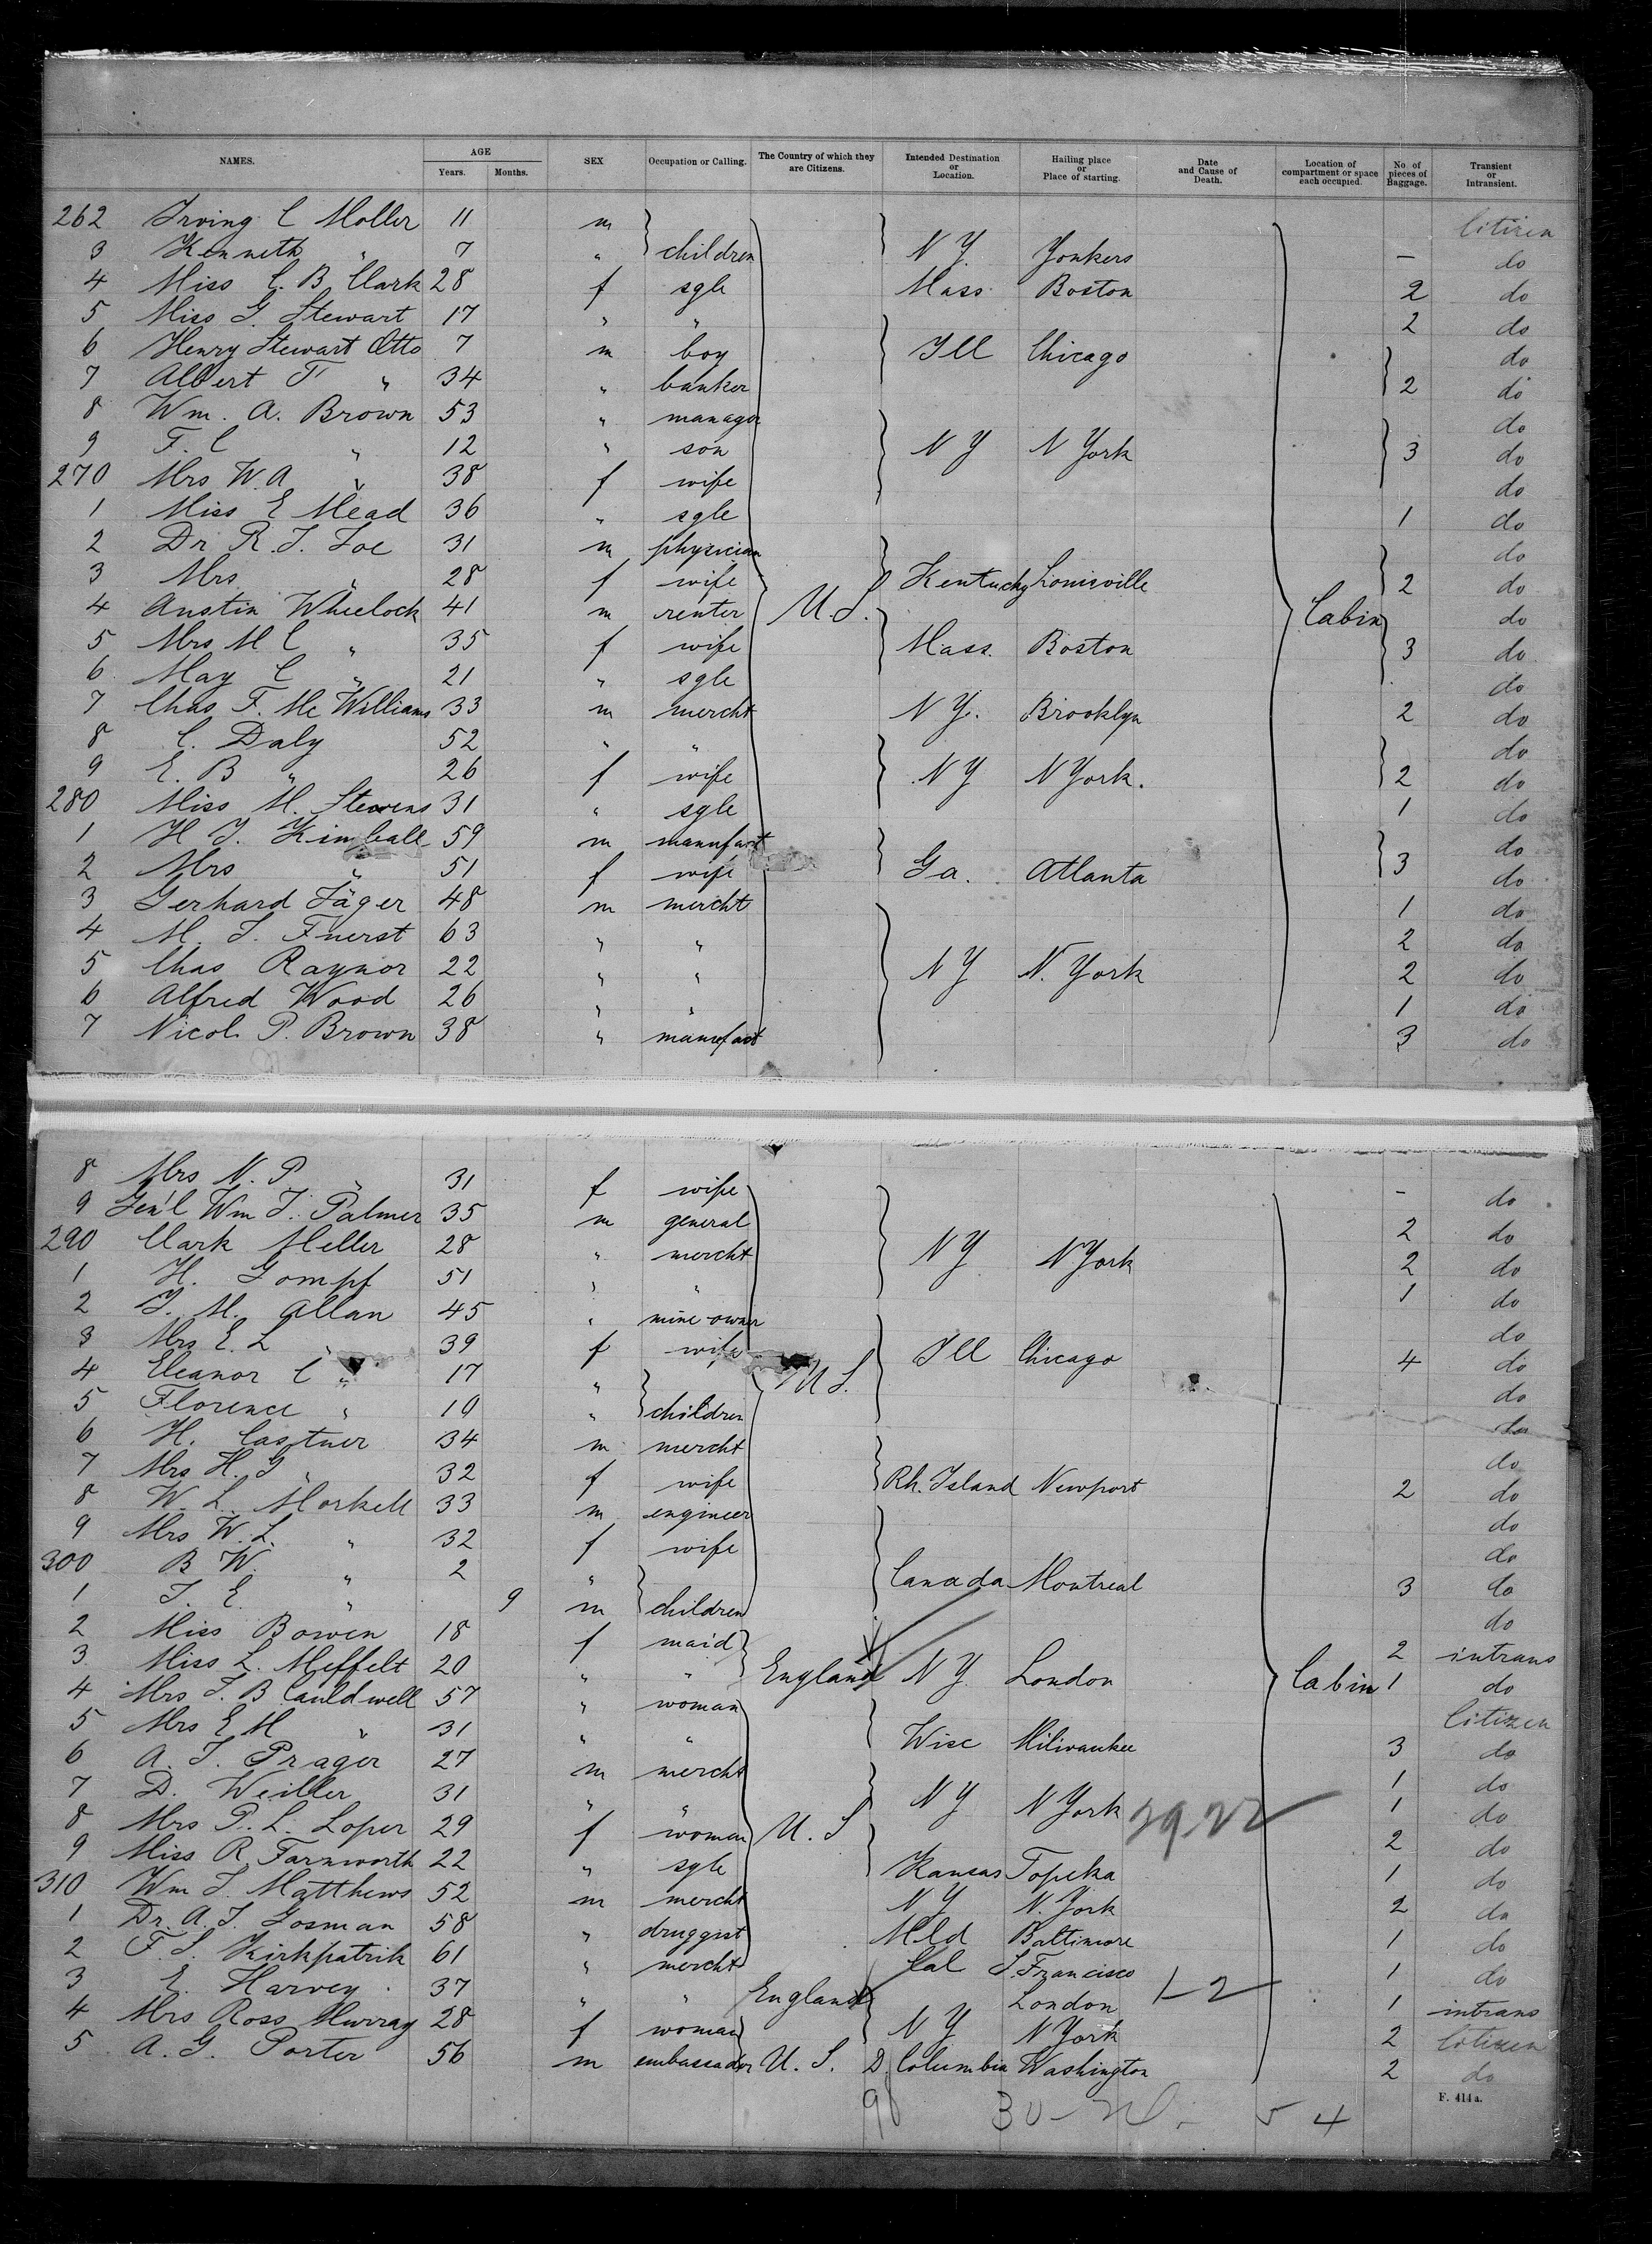 NAMES. AGE Years. Months. SEX Occupation or Calling. The Country of which they are Citizens. Intended Destination or Location. Hailing place or Place of starting. Date and Cause of Death. Location of compartment or space each occupied. No. of pieces of Baggage. Transient or Intransient.
262 Irving C Moller 11 m Citizen
3 Kenneth " 7 " children N Y. Yonkers — do
4 Miss C. B. Clark 28 f sgle Mass Boston 2 do
5 Miss G. Stewart 17 " " 2 do
6 Henry Stewart Otto 7 m boy Ill Chicago do
7 Albert F " 34 " banker 2 do
8 Wm. A. Brown 53 " manager do
9 F. C " 12 " son N Y N York 3 do
270 Mrs W. A " 38 f wife do
1 Miss E Mead 36 " sgle 1 do
2 Dr R. J. 31 m physician do
3 Mrs " 28 f wife Kentucky Louisville 2 do
4 Austin Wheelock 41 m renter U. S. Cabin do
5 Mrs M C " 35 f wife Mass. Boston 3 do
6 May C " 21 " sgle do
7 Chas F. Mc Williams 33 m mercht N Y. Brooklyn 2 do
8 C. Daly 52 " " do
9 E. B " 26 f wife N Y N York. 2 do
280 Miss M. Stevens 31 " sgle 1 do
1 H J. Kimball 59 m manufact do
2 Mrs " 51 f wife Ga. Atlanta 3 do
3 Gerhard Jäger 48 m mercht 1 do
4 M. S. Fuerst 63 " " 2 do
5 Chas Raynor 22 " " N Y N. York 2 do
6 Alfred Wood 26 " " 1 do
7 Nicol P. Brown 38 " manufact 3 do
8 Mrs N. P " 31 f wife - do
9 Gen'l Wm J. Palmer 35 m general 2 do
290 Clark Meller 28 " mercht N Y N York 2 do
1 H. Gompf 51 " " 1 do
2 J. M. Allan 45 " mine-owner do
3 Mrs E. L " 39 f wife Ill Chicago 4 do
4 Eleanor C " 17 " U S. do
5 Florence " 10 " children do
6 H. Castner 34 m mercht do
7 Mrs H. G " 32 f wife Rh. Island Newport 2 do
8 W. L. Morkell 33 m engineer do
9 Mrs W. L. " 32 f wife do
300 B W. " 2 " Canada Montreal 3 do
1 J. E. " 9 m children do
2 Miss Bowen 18 f maid 2 intrans
3 Miss L. Meffelt 20 " " England N Y. London Cabin 1 do
4 Mrs J. B Cauldwell 57 " woman Citizen
5 Mrs E M " 31 " " Wisc Milwaukee 3 do
6 A. J. Prager 27 m mercht 1 do
7 D. Weiller 31 " " N Y N York 1 do
8 Mrs P. L. Loper 29 f woman U. S 2 do
9 Miss R. Farnworth 22 " sgle Kansas Topeka 1 do
310 Wm J. Matthews 52 m mercht N Y N. York 2 do
1 Dr. A. J. Gosman 58 " druggist Mld Baltimore 1 do
2 F. S. Kirkpatrik 61 " mercht Cal S. Francisco 1 do
3 E. Harvey 37 " " England London 1-2 1 intrans
4 Mrs Ross Murray 28 f woman N Y N York 2 Citizen
5 A. G. Porter 56 m embassador U. S. D. Columbia Washington 2 do
F. 414a.
5 4